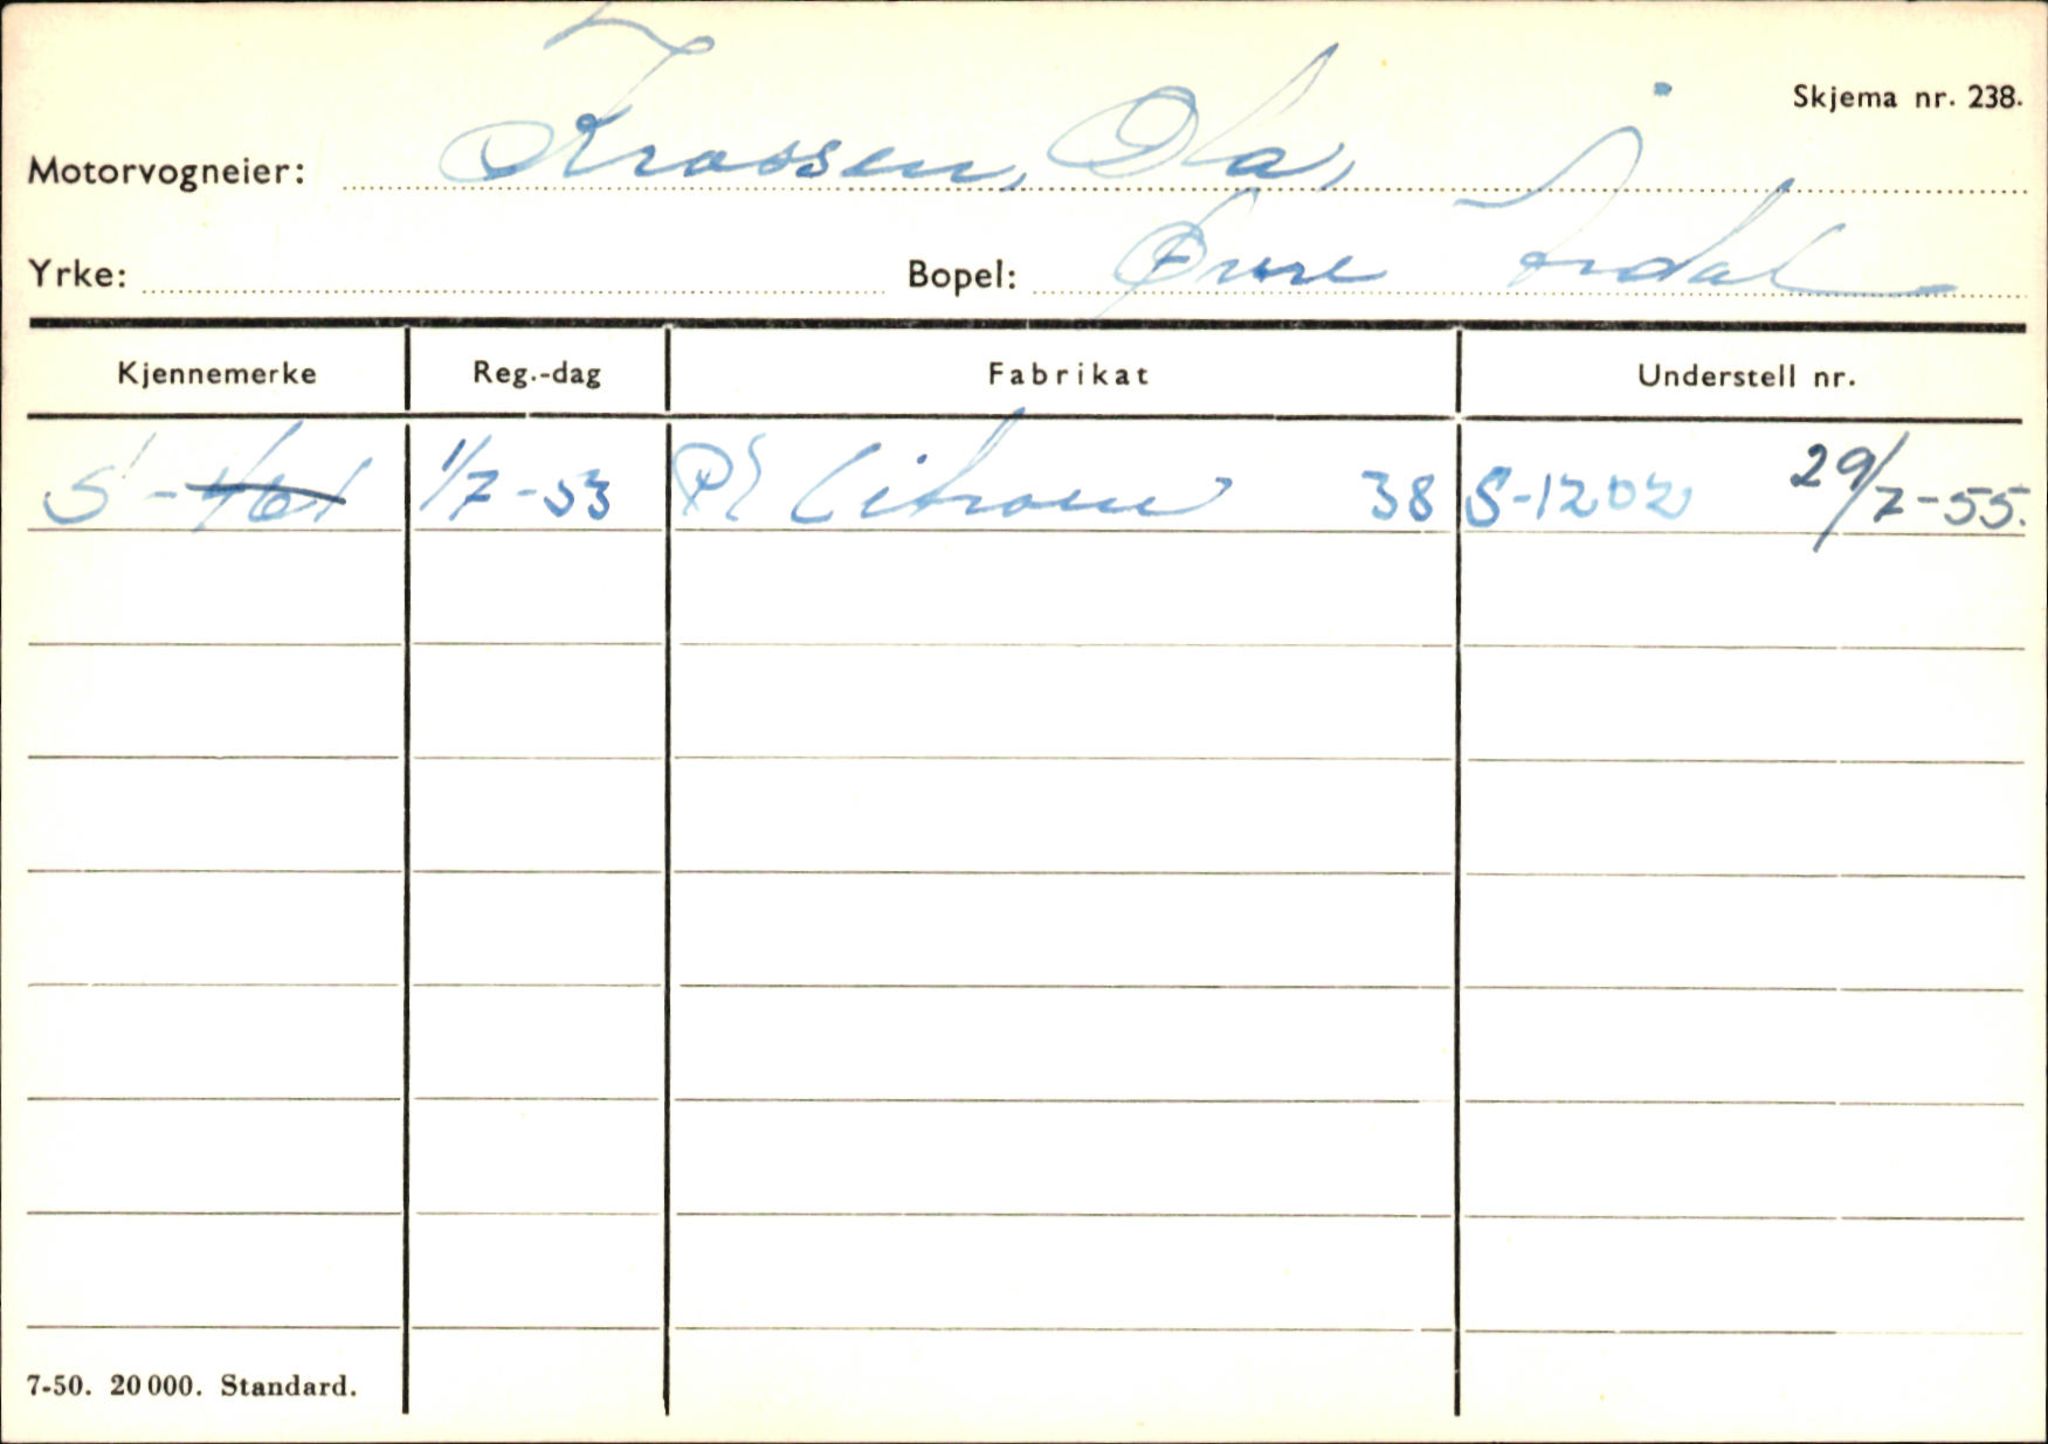 Skjema nr. 238.
Motorvogneier: Krossen, Ola,
Yrke: Bopel: Øvre Årdal
Kjennemerke Reg.-dag Fabrikat Understell nr.
S-461 1/7-53 Pl Citroen 38 S-1202 29/7-55.
7-50. 20 000. Standard.